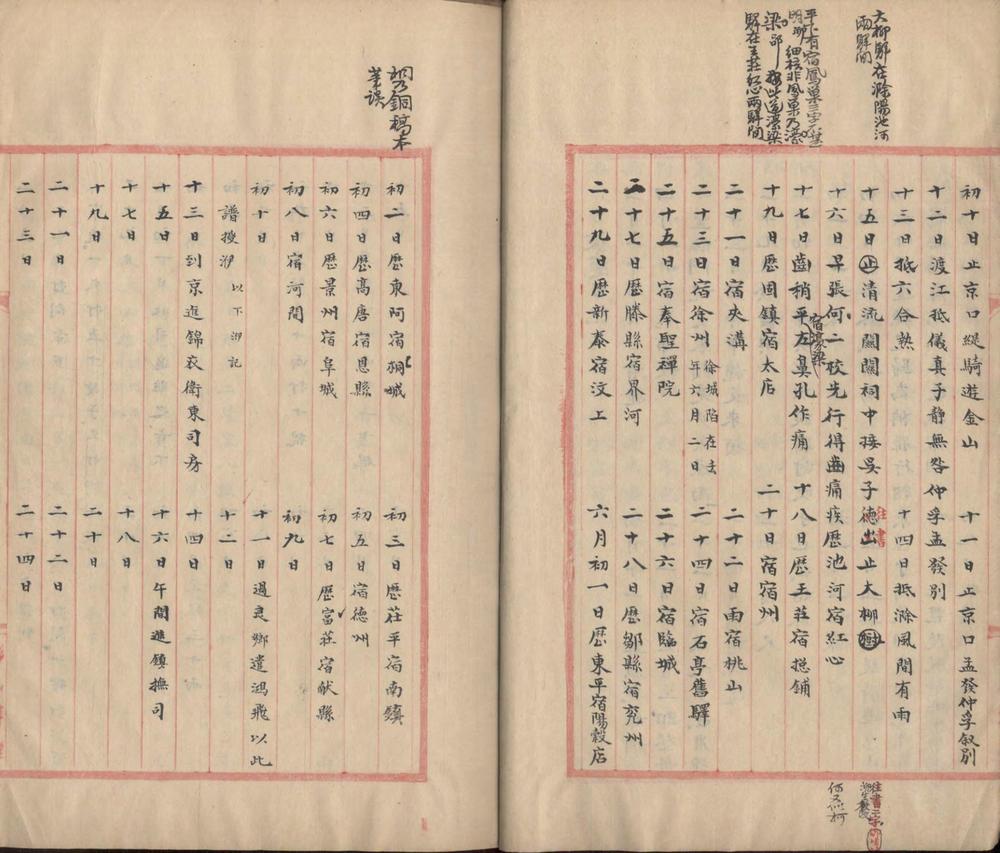 大柳驛在滁陽池河
兩驛間
平下有宿鳳巢三字
明 細核非鳳巢乃濠
梁郎 此道濠梁
驛在王莊紅心兩驛間
初十日止京口緹騎遊金山 十一日止京口孟發仲孚叙別
十二日渡江抵儀真子靜無咎仲孚孟發別
十三日抵六合熱 十四日抵滁風間有雨
十五日止清流關關祠中接吳子德出止大柳樹
往書
十六日早張何二校先行得齒痛疾歷池河宿紅心
十七日齒稍平左鼻孔作痛 十八日歷王莊宿摠鋪
宿濠梁
十九日歷固鎮宿太店 二十日宿宿州
二十一日宿夾溝 二十二日雨宿桃山
二十三日宿徐州 徐城陷在去年六月二日 二十四日宿石亭舊驛
二十五日宿奉聖禪院 二十六日宿臨城
二十七日歷滕縣宿界河 二十八日歷鄒縣宿兖州
二十九日歷新泰宿汶上 六月初一日歷東平宿陽穀店
往書二字
何又似柯
桐乃銅稿本
筆誤
初二日歷東阿宿桐城 初三日歷茌平宿南鎮
初四日歷高唐宿恩縣 初五日宿德州
初六日歷景州宿阜城 初七日歷富莊宿献縣
初八日宿河間 初九日
初十日 十一日過良鄉遣鴻飛以此
譜授沙 以下沙記 十二日
十三日到京進錦衣衛東司房 十四日
十五日 十六日午間進鎮撫司
十七日 十八日
十九日 二十日
二十一日 二十二日
二十三日 二十四日